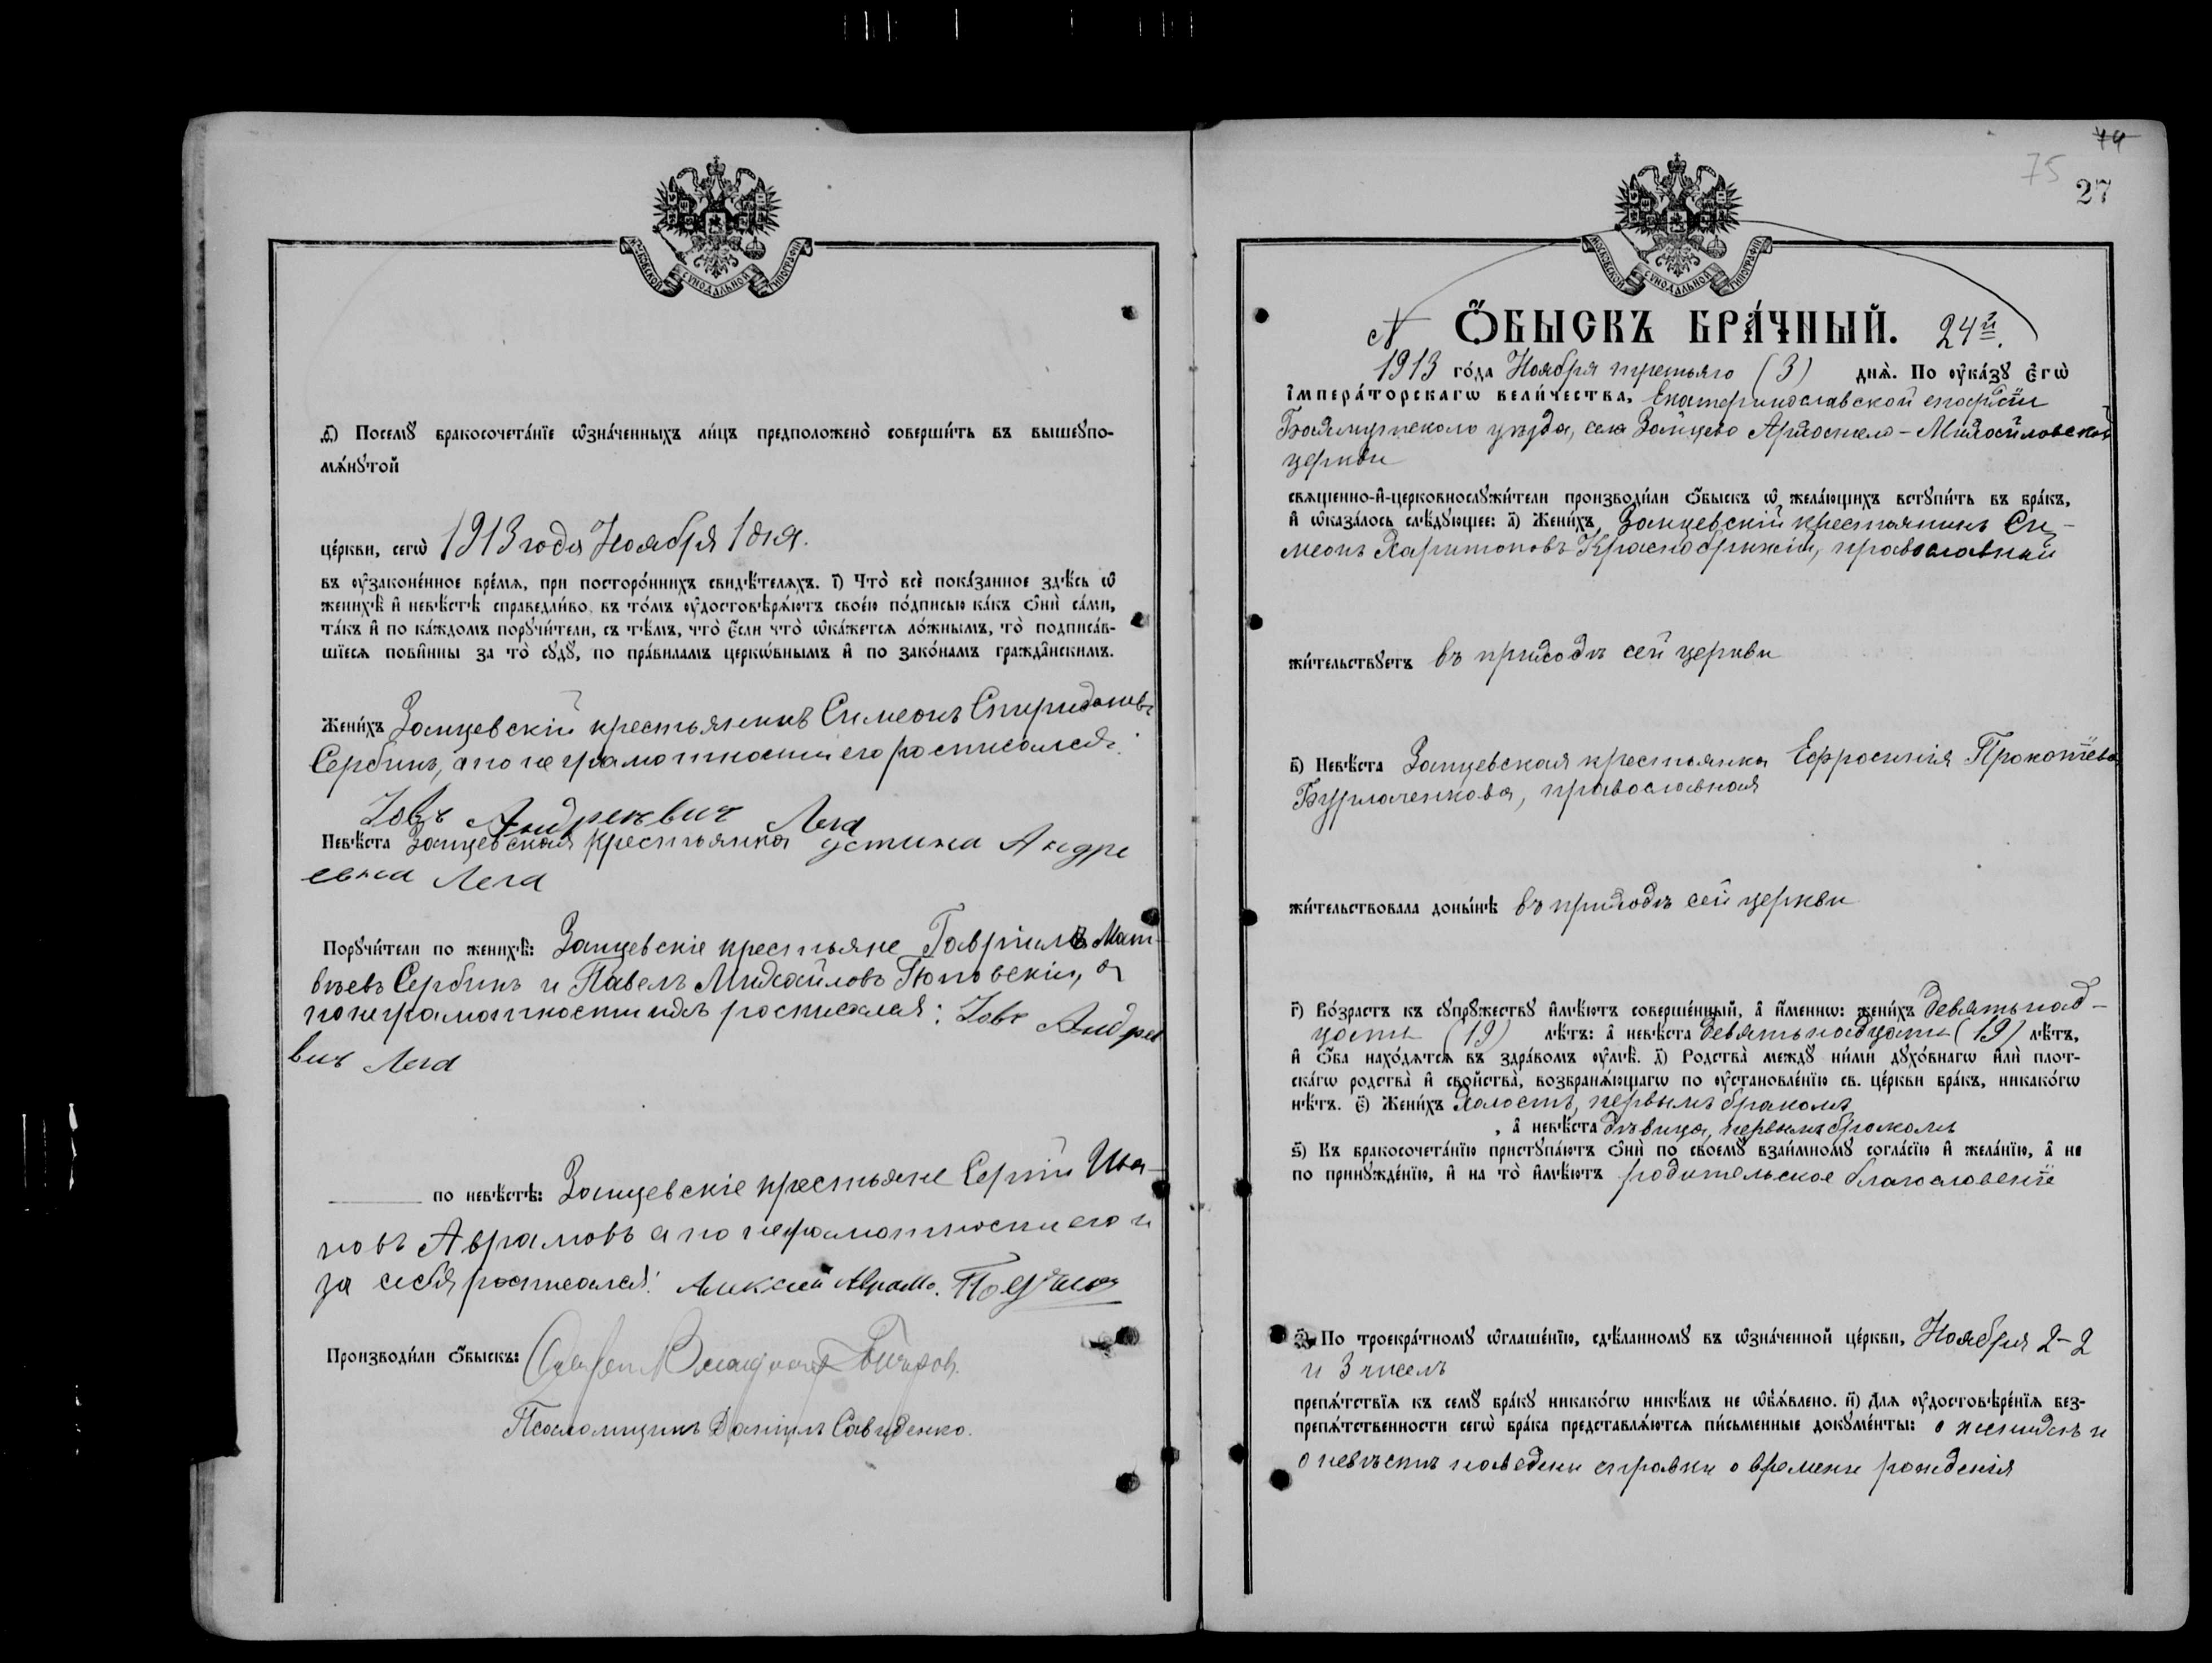 МОСКОВСКОЙ СѴНОДАЛЬНОЙ ТИПОГРАФІИ
Посемꙋ̀ бракосочета́нїе ѡ҆зна́ченныхъ ли́цъ предположено̀ соверши́ть въ вышеꙋпо-
мѧ́нꙋтой
це́ркви, сегѡ̀ 1913 года Ноября 1 дня.
въ ᲂу҆зако́нное вре́мѧ, при посторо́ннихъ свидѣ́телѧхъ. і҃) Что̀ всѐ пока́занное здѣ́сь ѡ҆
женихѣ̀ и҆ невѣ́стѣ справедли́во, въ то́мъ ᲂу҆достовѣрѧ́ютъ свое́ю по́дписью ка́къ ѻ҆нѝ са́ми,
та́къ и҆ по ка́ждомъ порꙋчи́тели, съ тѣ́мъ, что̀ є҆́сли что̀ ѡ҆ка́жетсѧ ло́жнымъ, то̀ подписа́в-
шїесѧ пови́нны за то̀ сꙋдꙋ̀, по пра́виламъ церко́внымъ и҆ по зако́намъ гражда́нскимъ.
Жени́хъ Зайцевскій крестьянинъ Симеонъ Спиридоновъ
Сербинъ, а по неграмотности его росписался:
Іовъ Андреевич Лега
Невѣ́ста Зайцевская крестьянка Устина Андре
евна Лега
Порꙋчи́тели по женихѣ̀: Зайцевскіе крестьяне Гавріилъ Мат-
вѣевъ Сербинъ и Павелъ Михайловъ а
по неграмотности ихъ росписался: Іовъ Андрее
вич Лега
по невѣ́стѣ: Зайцевскіе крестьяне Сергій Ива-
новъ Аврамовъ а по неграмотности его и
за себя росписался: Алексей
Производи́ли ѻ҆́быскъ:
Псаломщикъ Даніилъ Савиденко.
74
75
27
МОСКОВСКОЙ СѴНОДАЛЬНОЙ ТИПОГРАФІИ
№ Ѻ҆́БЫСКЪ БРА́ЧНЫЙ. 24й.
1913 го́да Ноября третьяго (3) днѧ̀. По ᲂу҆ка́зꙋ Є҆гѡ̀
І҆мпера́торскагѡ вели́чества, Екатеринославской епархіи
Бахмутскаго уѣзда, села Зайцево Архангело-Михайловской
церкви
свѧще́нно-и҆-церковнослꙋжи́тели производи́ли ѻ҆́быскъ ѡ҆ жела́ющихъ встꙋпи́ть въ бра́къ,
и҆ ѡ҆каза́лось слѣ́дꙋющее: а҃) Жени́хъ, Зайцевскій крестьянинъ Си-
меонъ Харитоновъ православный
жи́тельствꙋетъ въ приходѣ сей церкви
в҃) Невѣ́ста Зайцевская крестьянка Ефросинія Прокопіева
Бурлаченкова, православная
жи́тельствовала доны́нѣ въ приходѣ сей церкви
г҃) Во́зрастъ къ сꙋпрꙋ́жествꙋ и҆мѣ́ютъ соверше́нный, а҆ и҆́менно: жени́хъ девятнад-
цати (19) лѣ́тъ: а҆ невѣ́ста девятнадцати (19) лѣ́тъ,
и҆ ѻ҆́ба нахо́дѧтсѧ въ здра́вомъ ᲂу҆мѣ̀. д҃) Родства̀ междꙋ̀ ни́ми дꙋхо́внагѡ и҆лѝ плот-
ска́гѡ родства̀ и҆ сво́йства, возбранѧ́ющагѡ по ᲂу҆становле́нїю св. це́ркви бра́къ, никако́гѡ
нѣ́тъ. є҃) Жени́хъ холостъ, первымъ бракомъ
, а҆ невѣ́ста дѣвица, первымъ бракомъ
ѕ҃) Къ бракосочета́нїю пристꙋпа́ютъ ѻ҆нѝ по своемꙋ̀ взаи́мномꙋ согла́сїю и҆ жела́нїю, а҆ не
по принꙋжде́нїю, и҆ на то̀ и҆мѣ́ютъ родительское благословеніе
По троекра́тномꙋ ѡ҆глаше́нїю, сдѣ́ланномꙋ въ ѡ҆зна́ченной це́ркви, Ноября 2-2
и 3 чиселъ
препѧ́тствїѧ къ семꙋ̀ бра́кꙋ никако́гѡ никѣ́мъ не ѡ҆б̾ѧ́влено. и҃) Длѧ ᲂу҆достовѣре́нїѧ без-
препѧ́тственности сегѡ̀ бра́ка представлѧ́ютсѧ пи́сьменные докꙋме́нты: о женихѣ и
о невѣстѣ наведены справки о времени рожденія